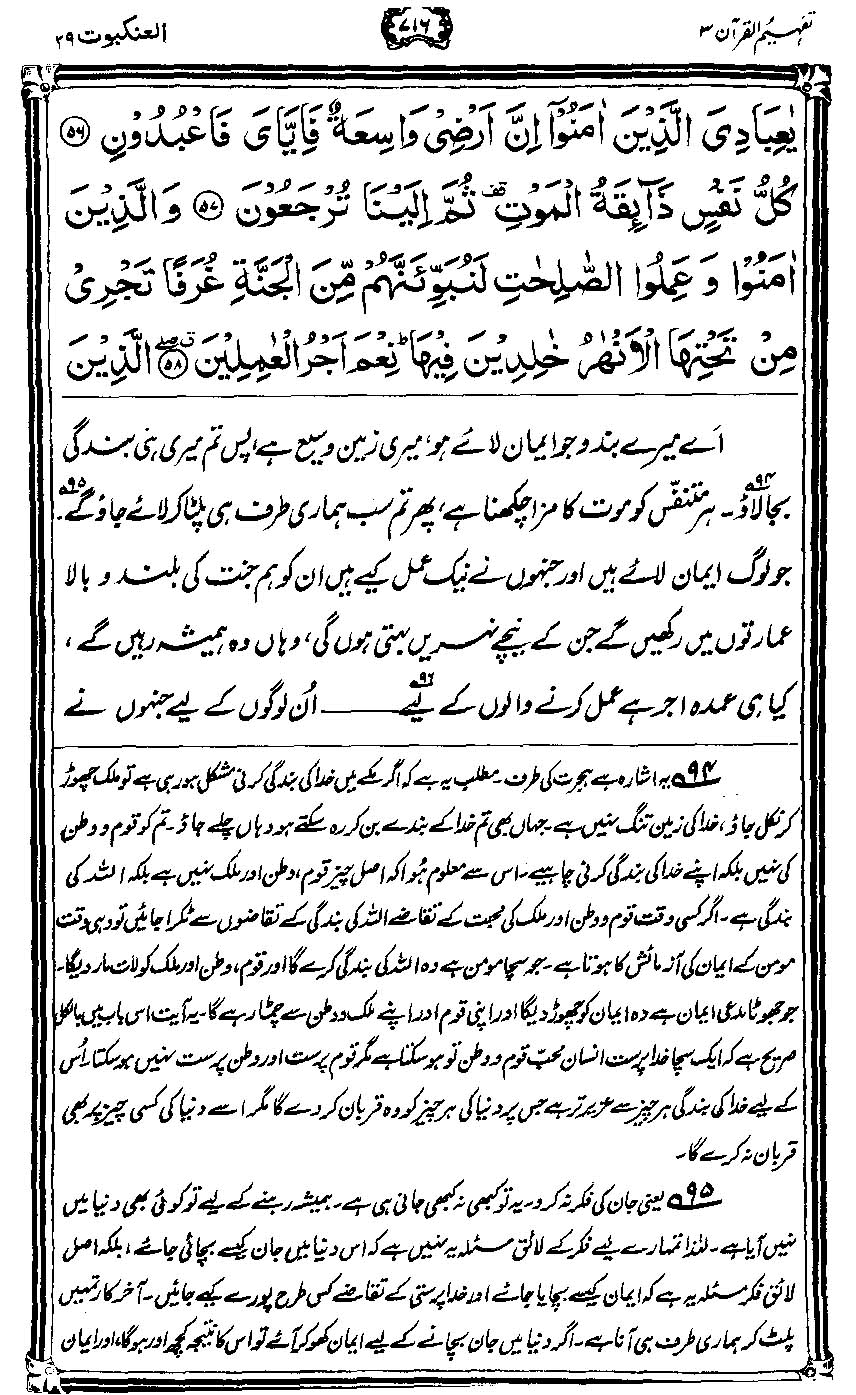 تفہیم القرآن ۳
۷۱۶
العنکبوت ۲۹
یٰعِبَادِیَ الَّذِیْنَ اٰمَنُوْۤا اِنَّ اَرْضِیْ وَاسِعَةٌ فَاِیَّایَ فَاعْبُدُوْنِ ۵۶
كُلُّ نَفْسٍ ذَآئِقَةُ الْمَوْتِ قف ثُمَّ اِلَیْنَا تُرْجَعُوْنَ ۵۷ وَالَّذِیْنَ
اٰمَنُوْا وَ عَمِلُوا الصّٰلِحٰتِ لَنُبَوِّئَنَّهُمْ مِّنَ الْجَنَّةِ غُرَفًا تَجْرِیْ
مِنْ تَحْتِهَا الْاَنْهٰرُ خٰلِدِیْنَ فِیْهَا ؕ نِعْمَ اَجْرُ الْعٰمِلِیْنَ ۵۸ الَّذِیْنَ
اَے میرے بندو جو ایمان لائے ہو، میری زمین وسیع ہے، پس تم میری ہی بندگی
بجا لاؤ۹۴۔ ہر متنفّس کو موت کا مزا چکھنا ہے، پھر تم سب ہماری طرف ہی پلٹا کر لائے جاؤ گے۹۵۔
جو لوگ ایمان لائے ہیں اور جنہوں نے نیک عمل کیے ہیں ان کو ہم جنت کی بلند و بالا
عمارتوں میں رکھیں گے جن کے نیچے نہریں بہتی ہوں گی، وہاں وہ ہمیشہ رہیں گے،
کیا ہی عمدہ اجر ہے عمل کرنے والوں کے لیے۹۶ــــــ اُن لوگوں کے لیے جنہوں نے
۹۴ یہ اشارہ ہے ہجرت کی طرف۔ مطلب یہ ہے کہ اگر مکے میں خدا کی بندگی کرنی مشکل ہو رہی ہے تو ملک چھوڑ
کر نکل جاؤ، خدا کی زمین تنگ نہیں ہے۔ جہاں بھی تم خدا کے بندے بن کر رہ سکتے ہو وہاں چلے جاؤ۔ تم کو قوم و وطن
کی نہیں بلکہ اپنے خدا کی بندگی کرنی چاہیے۔ اس سے معلوم ہُوا کہ اصل چیز قوم، وطن اور ملک نہیں ہے بلکہ اللہ کی
بندگی ہے۔ اگر کسی وقت قوم و وطن اور ملک کی محبت کے تقاضے اللہ کی بندگی کے تقاضوں سے ٹکرا جائیں تو وہی وقت
مومن کے ایمان کی آزمائش کا ہوتا ہے۔ جو سچا مومن ہے وہ اللہ کی بندگی کرے گا اور قوم، وطن اور ملک کو لات مار دیگا۔
جو جھوٹا مدعی ایمان ہے وہ ایمان کو چھوڑ دیگا اور اپنی قوم اور اپنے ملک و وطن سے چمٹا رہے گا۔ یہ آیت اس باب میں بالکل
صریح ہے کہ ایک سچا خدا پرست انسان محبِّ قوم و وطن تو ہو سکتا ہے مگر قوم پرست اور وطن پرست نہیں ہو سکتا۔ اُس
کے لیے خدا کی بندگی ہر چیز سے عزیز تر ہے جس پر دنیا کی ہر چیز کو وہ قربان کر دے گا مگر اسے دنیا کی کسی چیز پر بھی
قربان نہ کرے گا۔
۹۵ یعنی جان کی فکر نہ کرو۔ یہ تو کبھی نہ کبھی جانی ہی ہے۔ ہمیشہ رہنے کے لیے تو کوئی بھی دنیا میں
نہیں آیا ہے۔ لہٰذا تمہارے لیے فکر کے لائق مسئلہ یہ نہیں ہے کہ اس دنیا میں جان کیسے بچائی جائے، بلکہ اصل
لائقِ فکر مسئلہ یہ ہے کہ ایمان کیسے بچایا جائے اور خدا پرستی کے تقاضے کس طرح پورے کیے جائیں۔ آخرکار تمہیں
پلٹ کر ہماری طرف ہی آنا ہے۔ اگر دنیا میں جان بچانے کے لیے ایمان کھو کر آئے تو اس کا نتیجہ کچھ اور ہوگا، اور ایمان